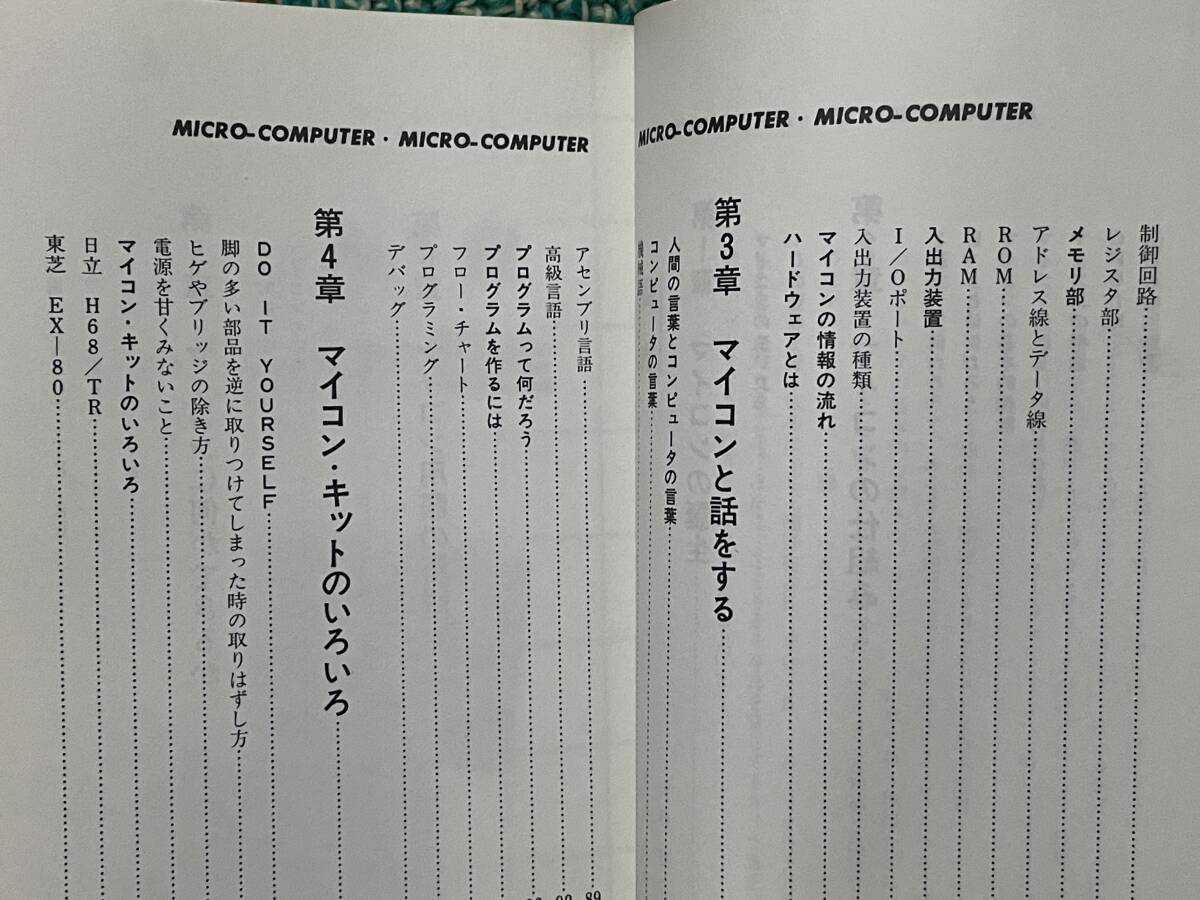 MICRO-COMPUTER・MICRO-COMPUTER
制御回路
レジスタ部
メモリ部
アドレス線とデータ線
ROM
RAM
入出力装置
I/Oポート
入出力装置の種類
マイコンの情報の流れ
ハードウェアとは
第3章 マイコンと話をする
人間の言葉とコンピュータの言葉
コンピュータの言葉
機械語
MICRO-COMPUTER・MICRO-COMPUTER
アセンブリ言語
高級言語
プログラムって何だろう
プログラムを作るには
フロー・チャート
プログラミング
デバッグ
第4章 マイコン・キットのいろいろ
DO IT YOURSELF
脚の多い部品を逆に取りつけてしまった時の取りはずし方
ヒゲやブリッジの除き方
電源を甘くみないこと
マイコン・キットのいろいろ
日立 H68/TR
東芝 EX-80
89